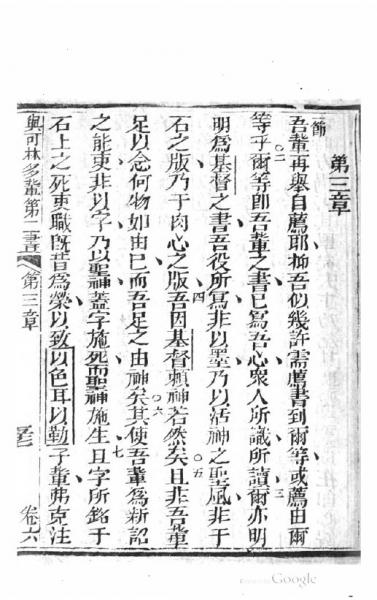 第三章
節
吾輩再舉自薦耶柳吾似幾許需薦書到爾等或薦由爾
二 三
等乎爾等即吾輩之書已寫吾心衆人所識所讀爾亦明
明爲基督之書吾役所寫非以墨乃以活神之聖風非于
四 五
石之版乃于肉心之版吾因基督賴神若然矣且非吾輩
六
足以念何物如由已而吾足之由神矣其使吾輩爲新詔
七
之能吏非以字乃以聖神蓋字施死而聖神施生且字所銘于
石上之死吏職既昔爲榮以致以色耳以勒子輩弗克注
與可林多輩第二書 第三章 卷六
Google